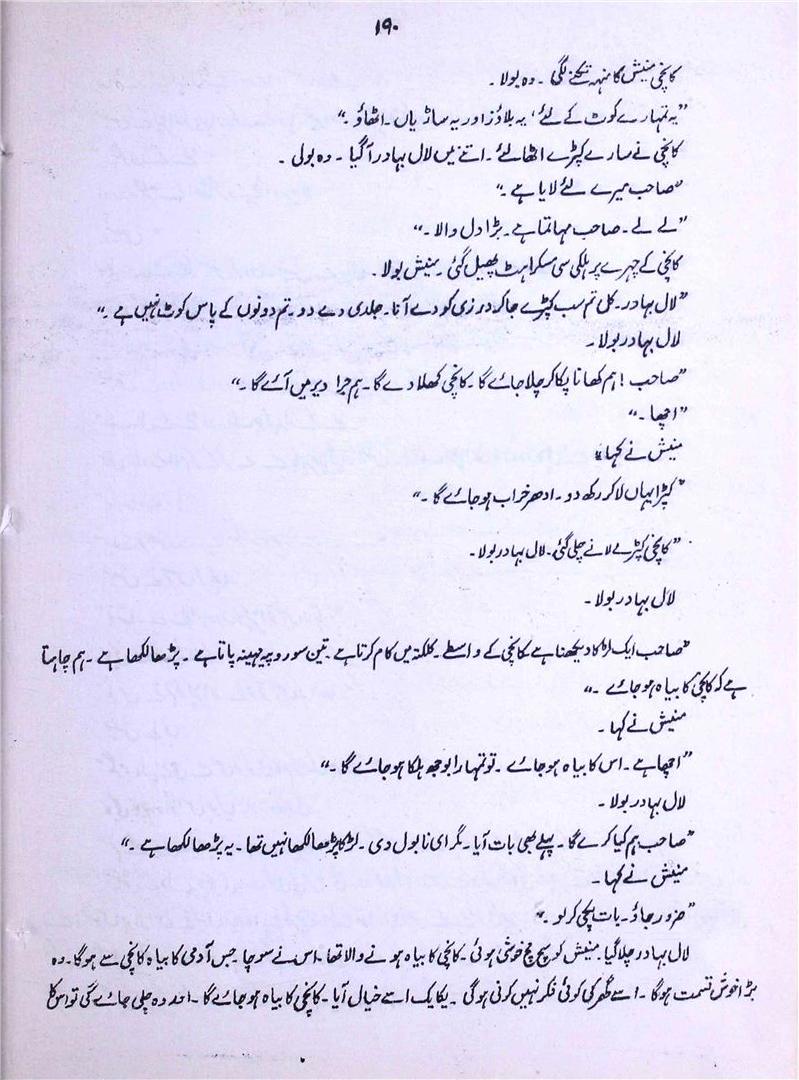 ۱۹۰
کانچی منیش کا منہ تکنے لگی ۔ وہ بولا ۔
"یہ تمہارے کوٹ کے لئے ' یہ بلاؤز اور یہ ساڑیاں ۔ اٹھاؤ ۔"
کانچی نے سارے کپڑے اٹھا لئے ۔ اتنے میں لال بہادر آ گیا ۔ وہ بولی ۔
"صاحب میرے لئے لایا ہے ۔"
"لے لے ۔ صاحب مہاتما ہے ۔ بڑا دل والا ۔"
کانچی کے چہرے پر ہلکی سی مسکراہٹ پھیل گئی ۔ منیش بولا ۔
"لال بہادر ۔ کل تم سب کپڑے جا کر درزی کو دے آنا ۔ جلدی دے دو ۔ تم دونوں کے پاس کوٹ نہیں ہے ۔"
لال بہادر بولا ۔
"صاحب ! ہم کھانا پکا کر چلا جائے گا ۔ کانچی کھلا دے گا ۔ ہم جرا دیر میں آئے گا ۔"
"اچھا ۔"
منیش نے کہا "
"کپڑا یہاں لا کر رکھ دو ۔ ادھر خراب ہو جائے گا ۔"
"کانچی کپڑے لانے چلی گئی ۔ لال بہادر بولا ۔
لال بہادر بولا ۔
"صاحب ایک لڑکا دیکھنا ہے کانچی کے واسطے ۔ کلکتہ میں کام کرتا ہے ۔ تین سو روپیہ مہینہ پاتا ہے ۔ پڑھا لکھا ہے ۔ ہم چاہتا
ہے کہ کانچی کا بیاہ ہو جائے ۔"
منیش نے کہا ۔
"اچھا ہے ۔ اس کا بیاہ ہو جائے ۔ تو تمہارا بوجھ ہلکا ہو جائے گا ۔"
لال بہادر بولا ۔
"صاحب ہم کیا کرے گا ۔ پہلے بھی بات آیا ۔ مگر ای نا بول دی ۔ لڑکا پڑھا لکھا نہیں تھا ۔ یہ پڑھا لکھا ہے ۔"
منیش نے کہا ۔
"ضرور جاؤ ۔ بات پکی کر لو ۔"
لال بہادر چلا گیا ۔ منیش کو سچ مچ خوشی ہوئی ۔ کانچی کا بیاہ ہونے والا تھا ۔ اس نے سوچا جس آدمی کا بیاہ کانچی سے ہو گا ۔ وہ
بڑا خوش قسمت ہو گا ۔ اسے گھر کی کوئی فکر نہیں کرنی ہو گی ۔ یکایک اسے خیال آیا ۔ کانچی کا بیاہ ہو جائے گا ۔ اور وہ چلی جائے گی تو اس کا